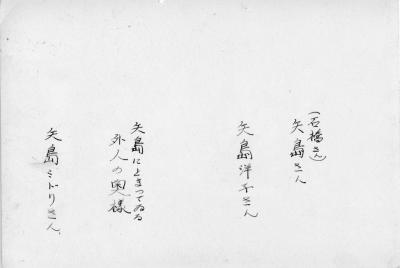 (石橋さん)
矢島さん
矢島洋子さん
矢島にとまつてゐる
外人の奥様
矢島ミドリさん、